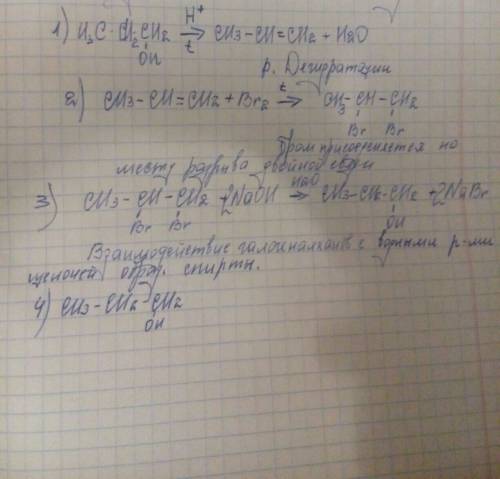 1) H₃C - CH₂CH₂ →(H⁺, t) CH₃-CH=CH₂ + H₂O
OH
р. Дегидратации
2) CH₃-CH=CH₂ + Br₂ →(t) CH₃-CH-CH₂
Br Br
Бром присоединяется по
месту разрыва двойной связи
3) CH₃-CH-CH₂ + 2NaOH →(H₂O) CH₃-CH₂-CH₂ + 2NaBr
Br Br OH
Взаимодействие галогеналканов с водными р-ми
щелочей обр. спирты.
4) CH₃-CH₂-CH₂
OH